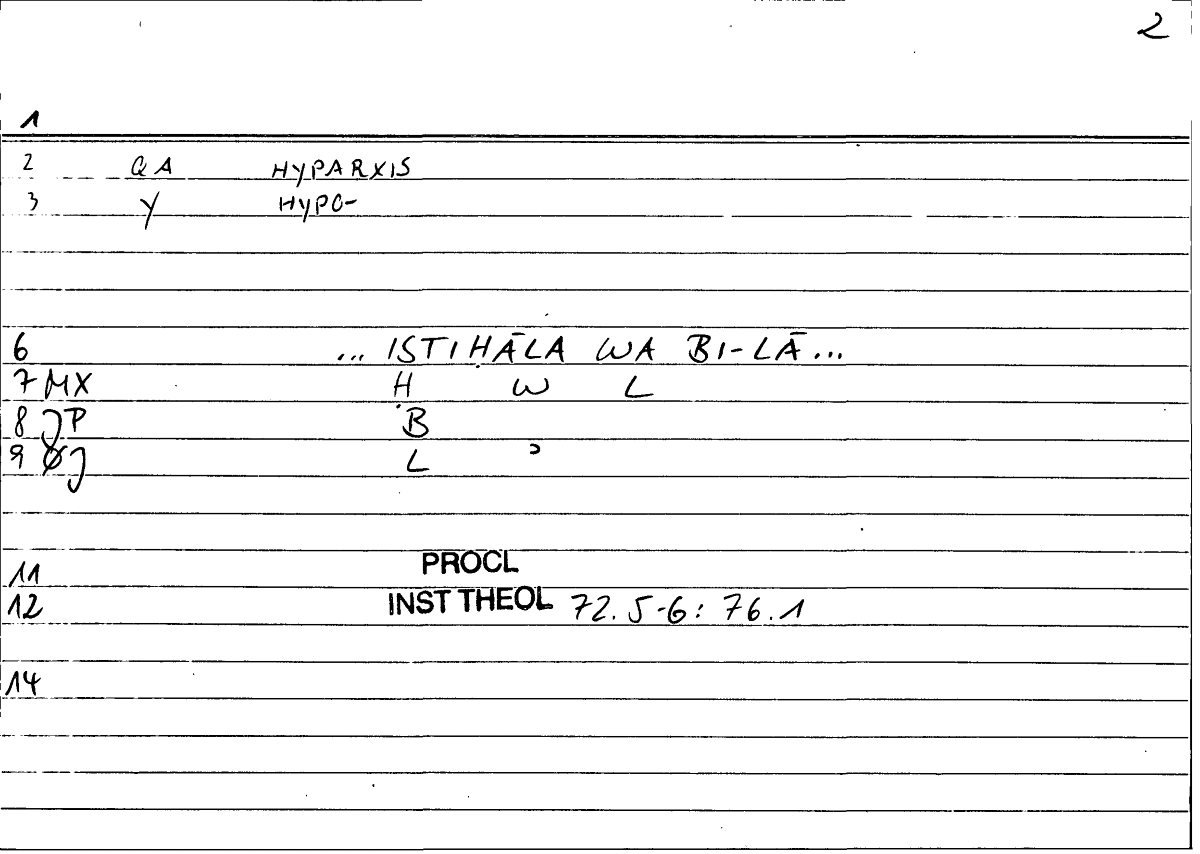 2
1
2 QA HYPARXIS
3 Y HYPO-
6 ... ISTIḤĀLA WA BI-LĀ...
7 MX Ḥ W L
8 JP B
9 ØJ L ʾ
11 PROCL
12 INST THEOL 72.5-6: 76.1
14